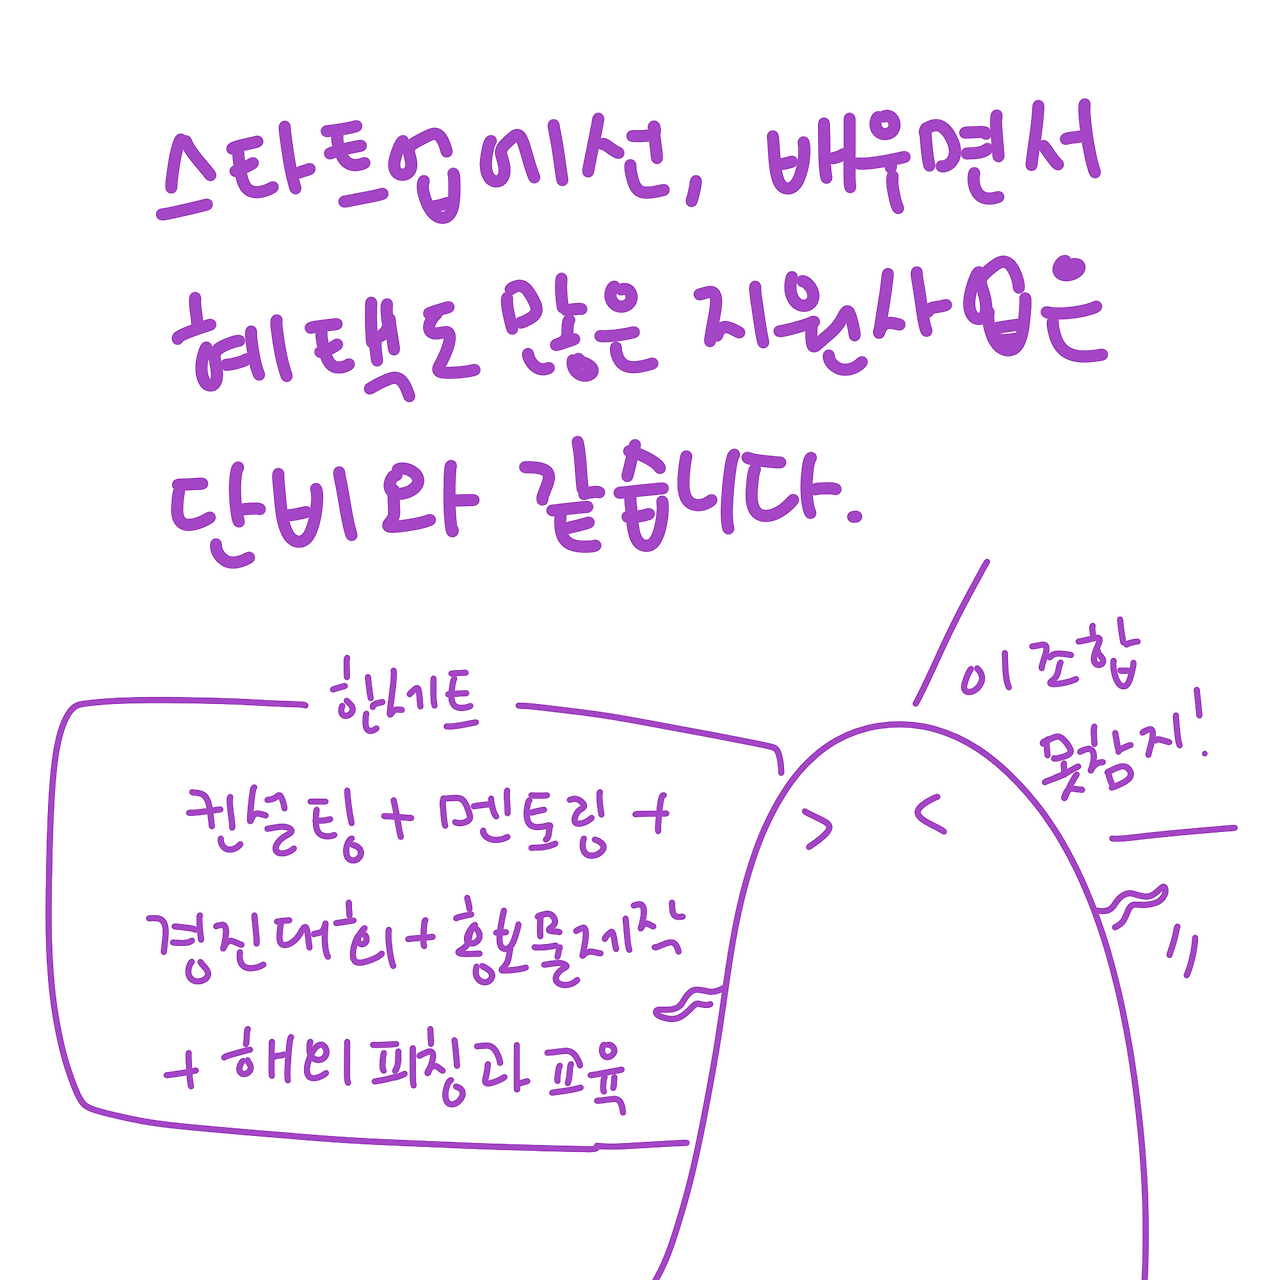 스타트업에선, 배우면서
혜택도 많은 지원사업은
단비와 같습니다.
이 조합
못참지!
한세트
컨설팅 + 멘토링 +
경진대회 + 홍보물제작
+ 해외 피칭과 교육